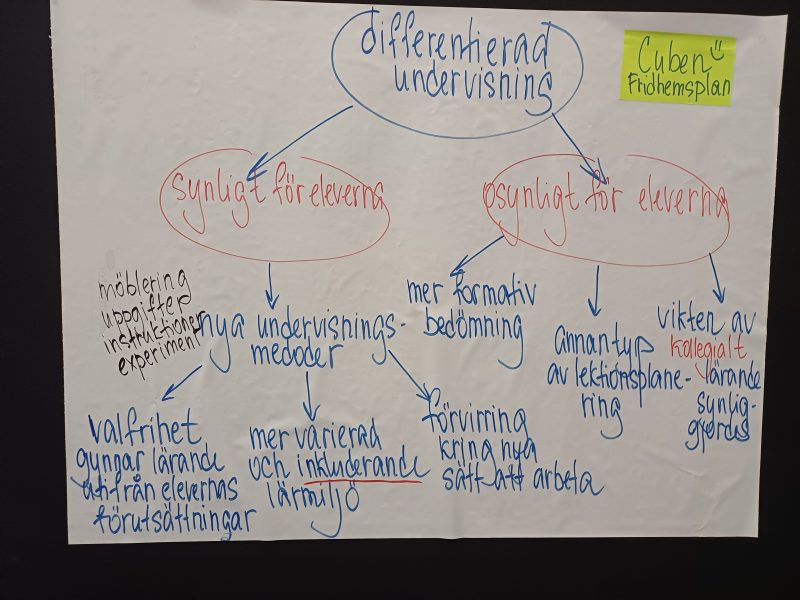 differentierad
undervisning
Cuben
Fridhemsplan
synligt för eleverna
osynligt för eleverna
möblering
uppgifter
instruktioner
experiment
nya undervisnings-
medoder
valfrihet
gynnar lärande
utifrån elevernas
förutsättningar
mer varierad
och inkluderande
lärmiljö
förvirring
kring nya
sätt att arbeta
mer formativ
bedömning
annan typ
av lektionsplane-
ring
vikten av
kollegialt
lärande
synlig-
gjordes